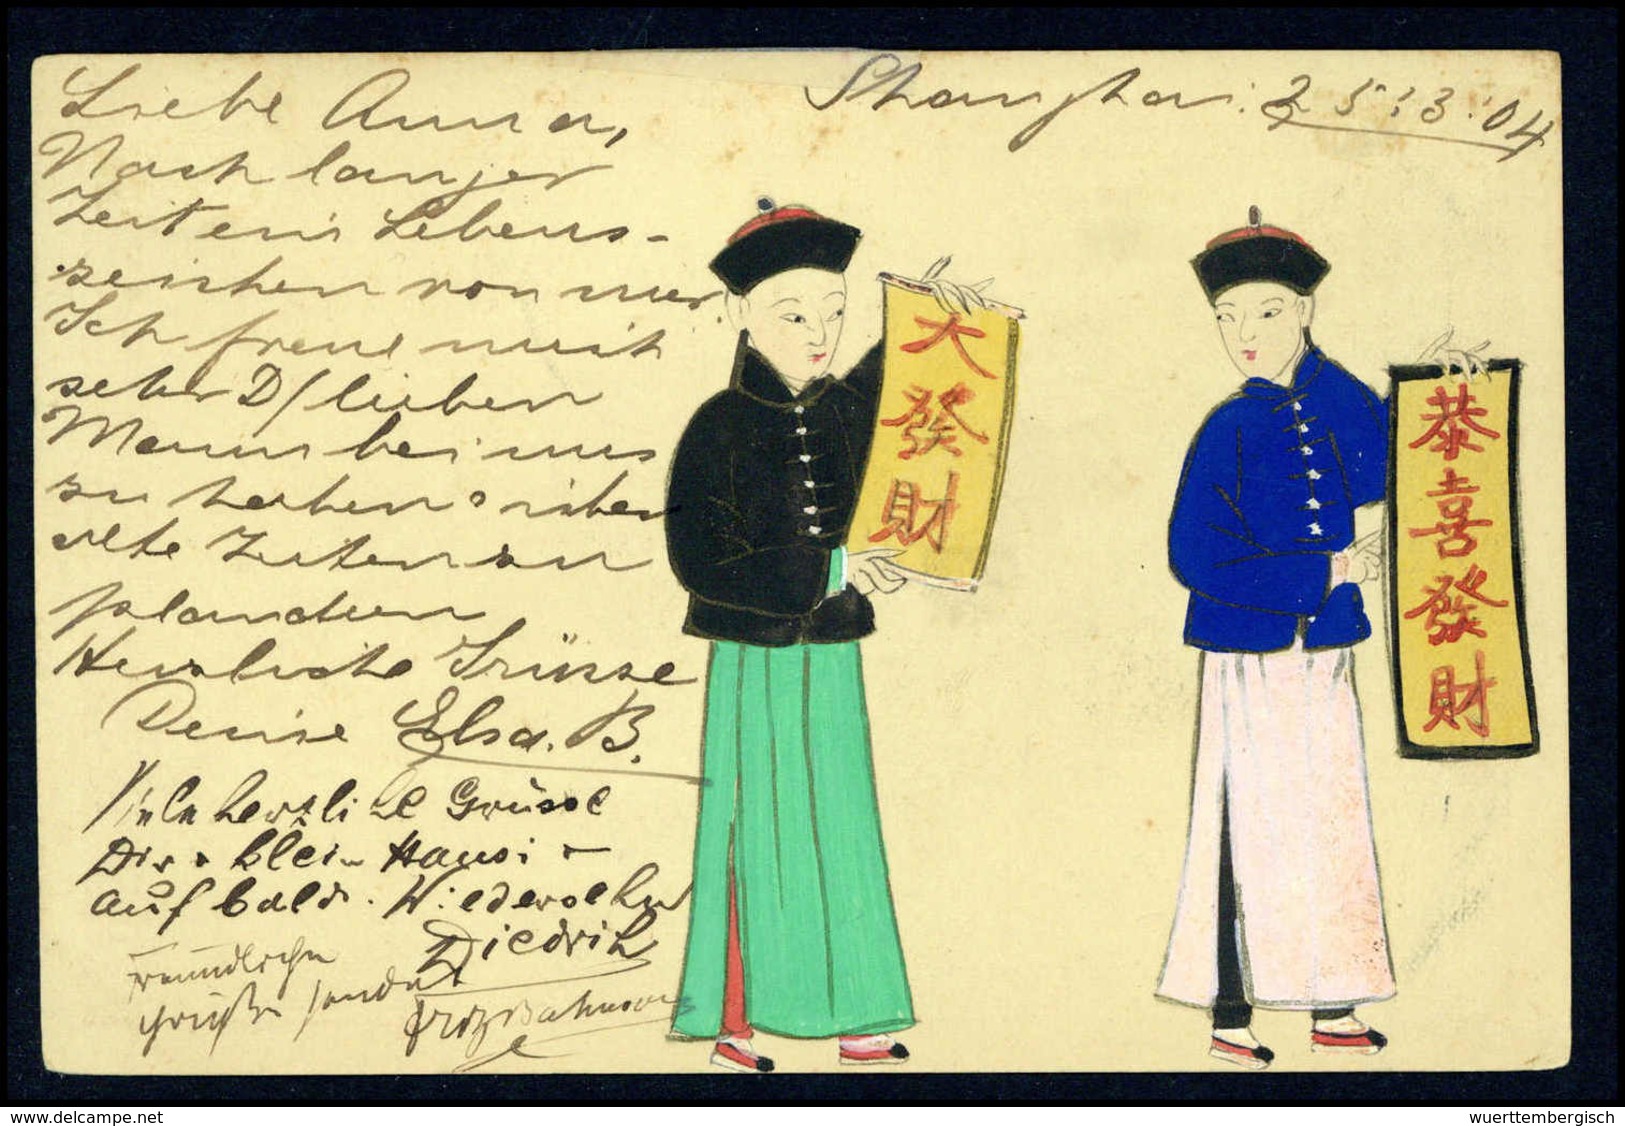 Shanghai: 25:3:04
Liebe Anna,
Nach langer
Zeit ein Lebens-
zeichen von mir.
Ich freue mich
sehr D/ lieben
Mann bei uns
zu haben über
alte Zeiten zu
plaudern
Herzliche Grüsse
Deine Elsa. B.
Viele herzliche Grüsse
Dir klein Hansi -
auf bald. Wiedersehn
Diedrich
freundliche
Grüße sendet
Fritz
大發財
恭喜發財
delcampe.net
wuerttembergisch